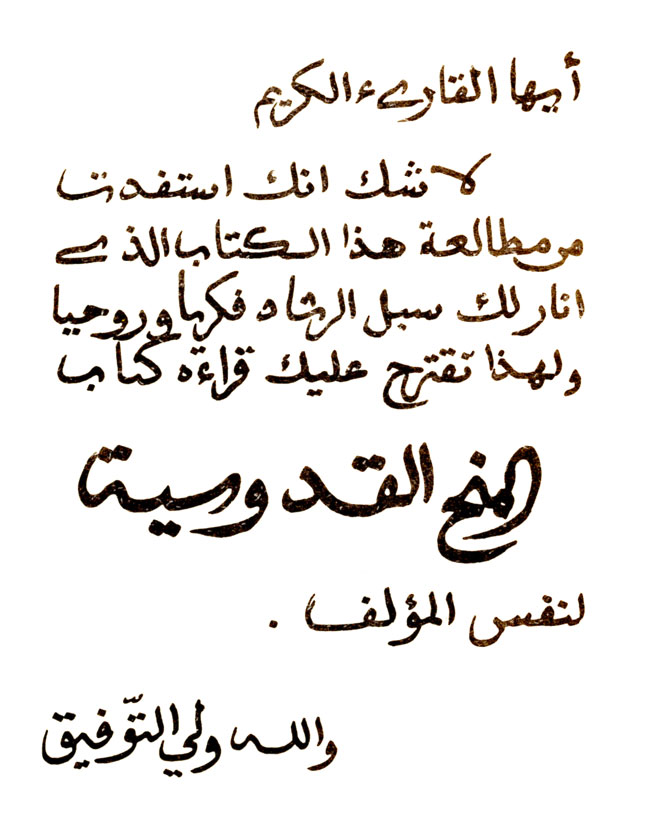 أيها القارىء الكريم
لا شك انك استفدت
من مطالعة هذا الكتاب الذى
انار لك سبل الرشاد فكريا وروحيا
ولهذا نقترح عليك قراءة كتاب
المنح القدوسية
لنفس المؤلف .
والله ولي التوّفيق